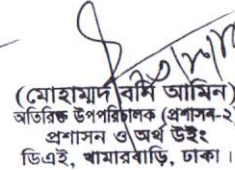 (মোহাম্মদ বনি আমিন)
অতিরিক্ত উপপরিচালক (প্রশাসন-২)
প্রশাসন ও অর্থ উইং
ডিএই, খামারবাড়ি, ঢাকা।